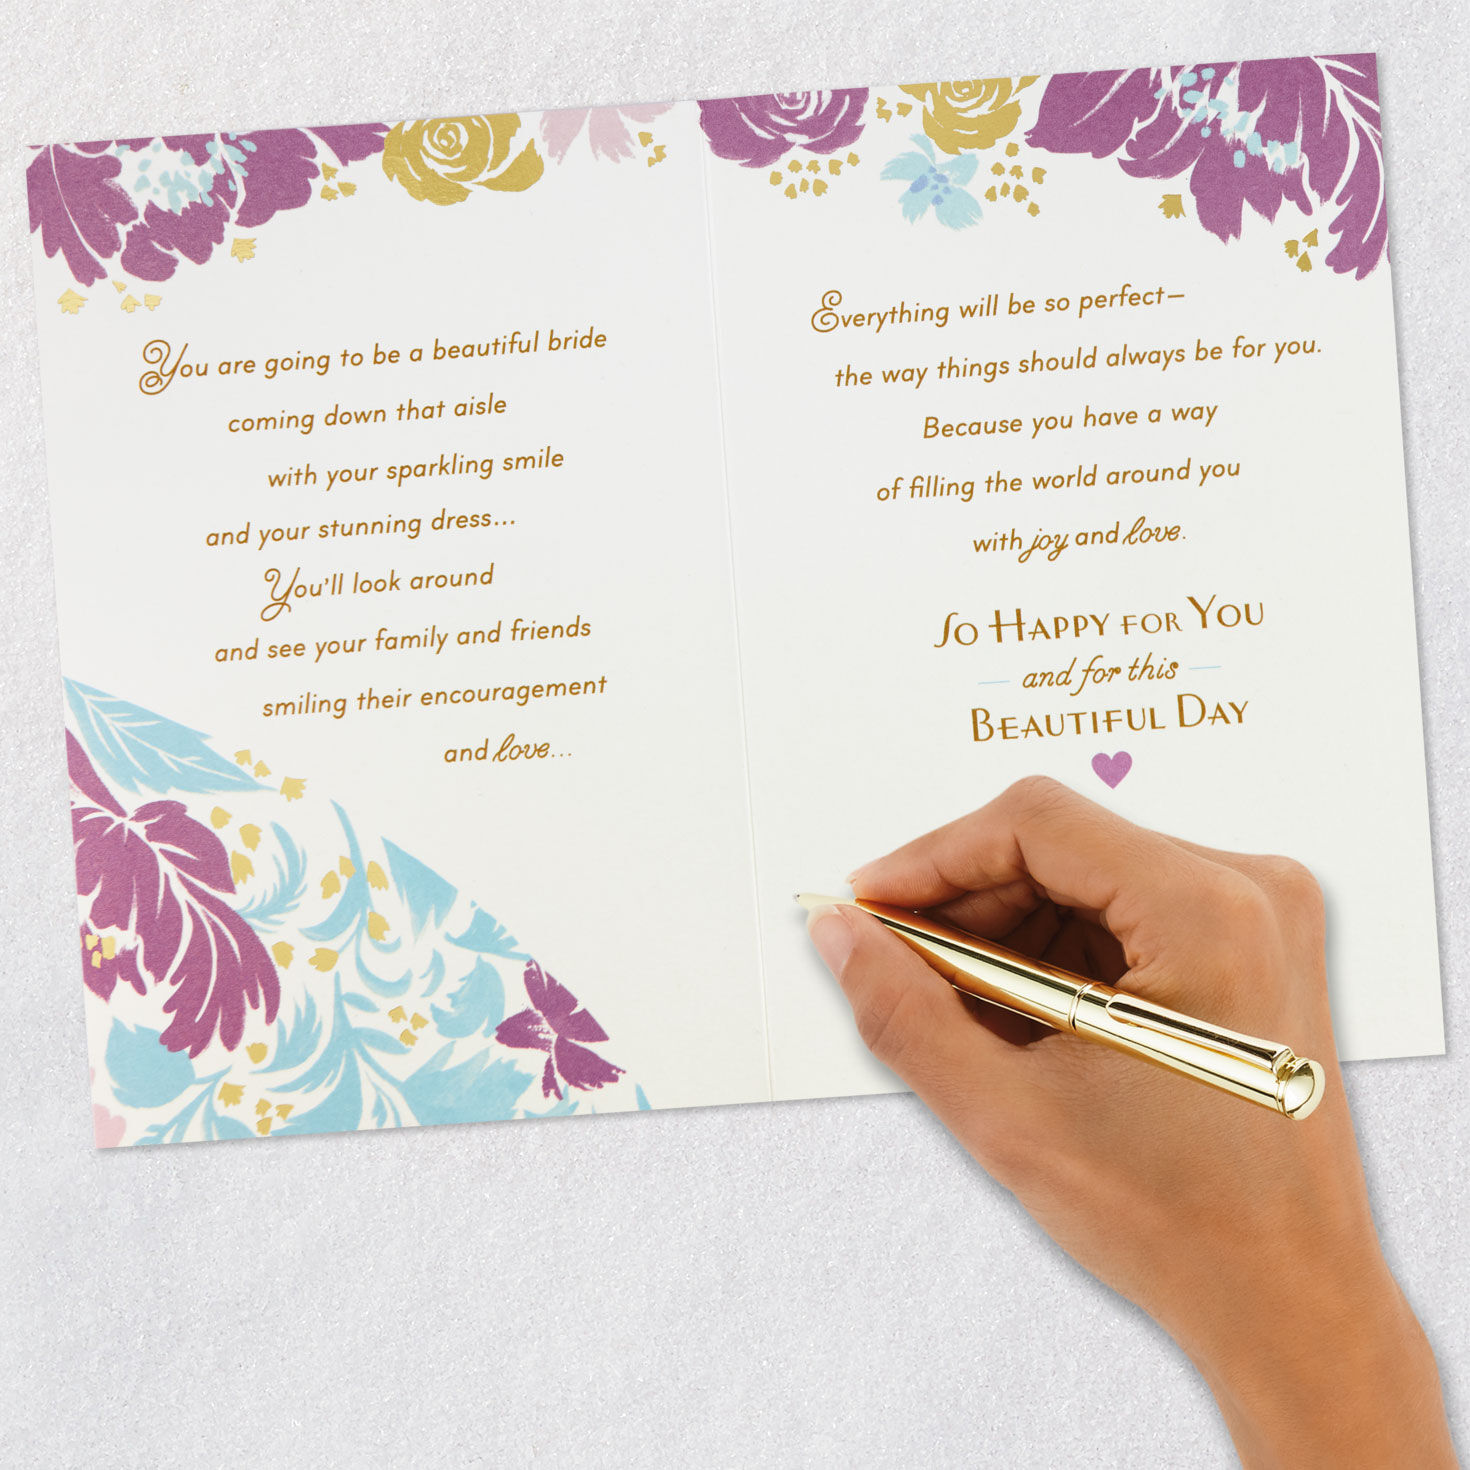 You are going to be a beautiful bride
coming down that aisle
with your sparkling smile
and your stunning dress...
You'll look around
and see your family and friends
smiling their encouragement
and love...
Everything will be so perfect—
the way things should always be for you.
Because you have a way
of filling the world around you
with joy and love.
So Happy for You
and for this
Beautiful Day